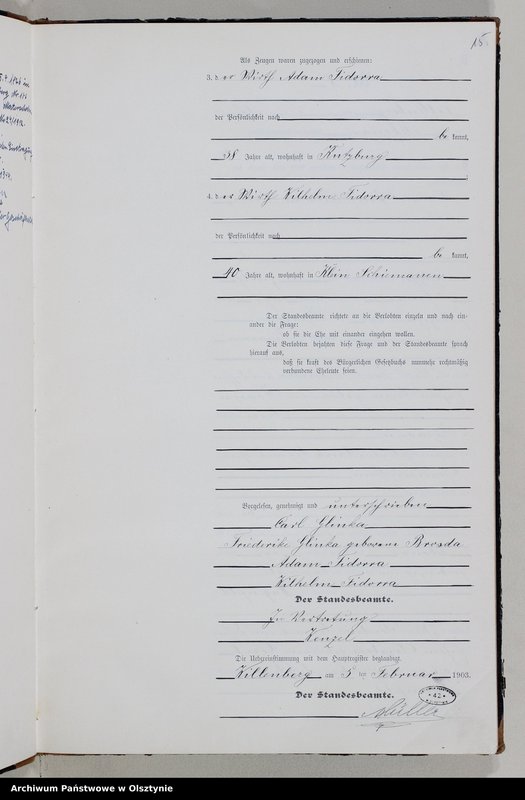 15.
Als Zeugen waren zugezogen und erschienen:
3. der Wirth Adam Fidorra
der Persönlichkeit nach
be kannt,
38 Jahre alt, wohnhaft in Kutzburg
4. der Wirth Wilhelm Fidorra
der Persönlichkeit nach
be kannt,
40 Jahre alt, wohnhaft in Klein Schiemanen
Der Standesbeamte richtete an die Verlobten einzeln und nach ein-
ander die Frage:
ob sie die Ehe mit einander eingehen wollen.
Die Verlobten bejahten diese Frage und der Standesbeamte sprach
hierauf aus,
daß sie kraft des Bürgerlichen Gesetzbuchs nunmehr rechtmäßig
verbundene Eheleute seien.
Vorgelesen, genehmigt und unterschrieben
Carl Glinka
Friederike Glinka geborene Brosda
Adam Fidorra
Wilhelm Fidorra
Der Standesbeamte.
In Vertretung
Wenzel
Die Uebereinstimmung mit dem Hauptregister beglaubigt.
Willenberg am 5 ten Februar 1903.
Der Standesbeamte.
Müller
Archiwum Państwowe w Olsztynie